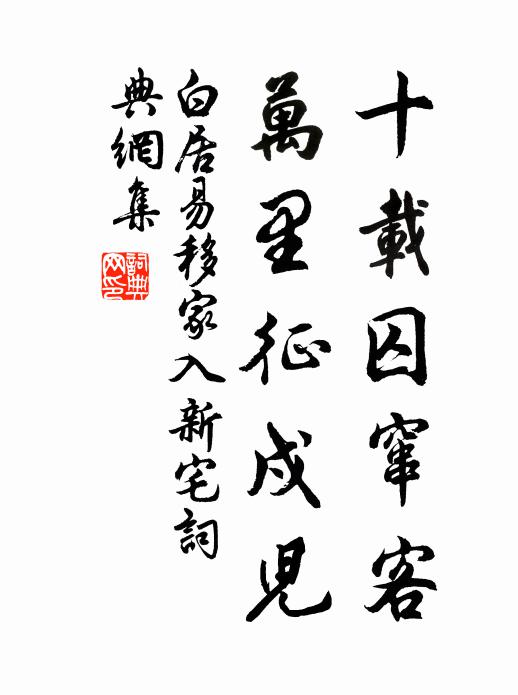 十載囚窜客
萬里征戍兒
白居易移家入新宅詞
典網集
詞典网印